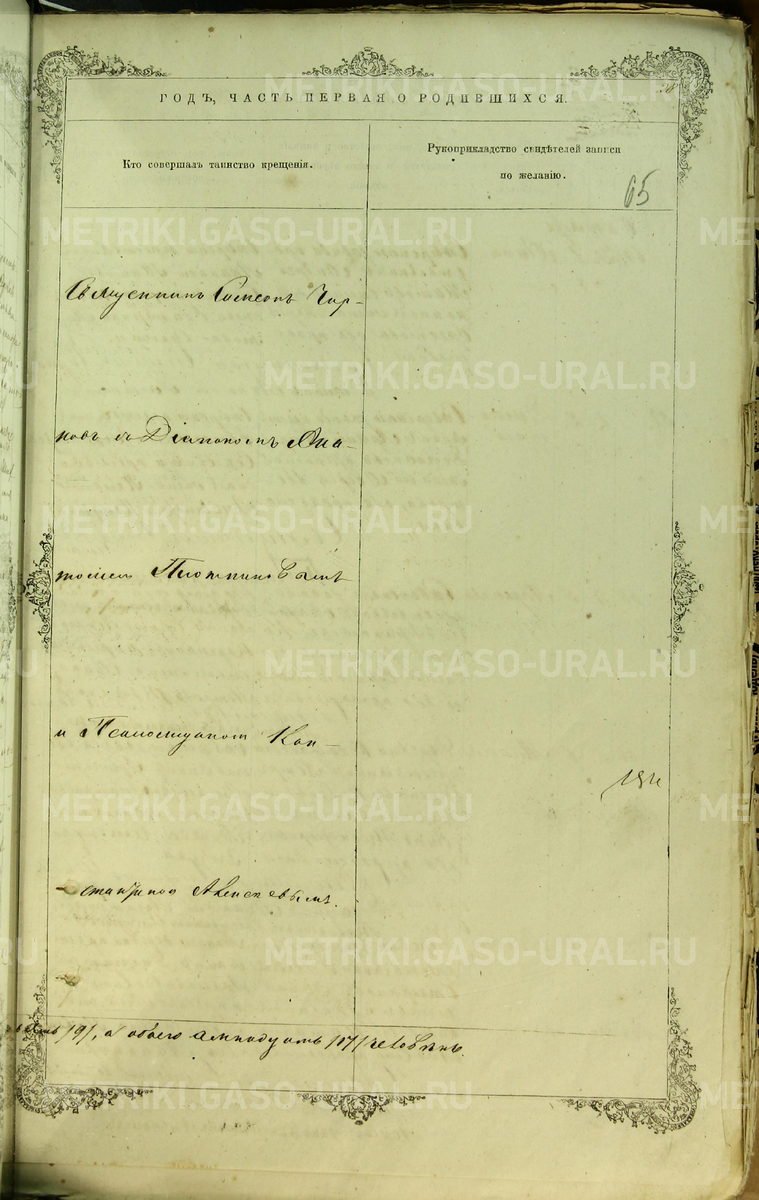 ГОДЪ, ЧАСТЬ ПЕРВАЯ О РОДИВШИХСЯ.
Кто совершалъ таинство крещенія.
Рукоприкладство свидѣтелей записи
по желанію.
65
Священникъ Симеонъ Чир-
ковъ съ Діакономъ Ана-
толіемъ Плотниковымъ
и Псаломщикомъ Кон-
стантиномъ Алексѣевымъ.
/9/, а обоего семнадцать /17/ человѣкъ.
METRIKI.GASO-URAL.RU